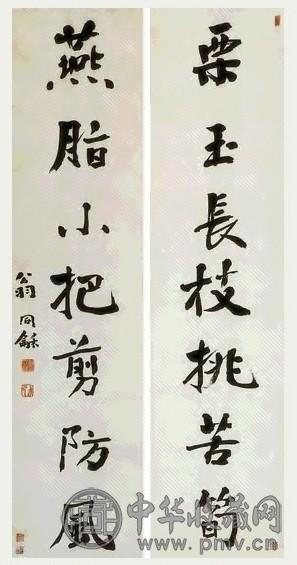 栗玉長枝挑苦筍
燕脂小把剪防風
翁同龢
中华收藏网
www.pmv.cn